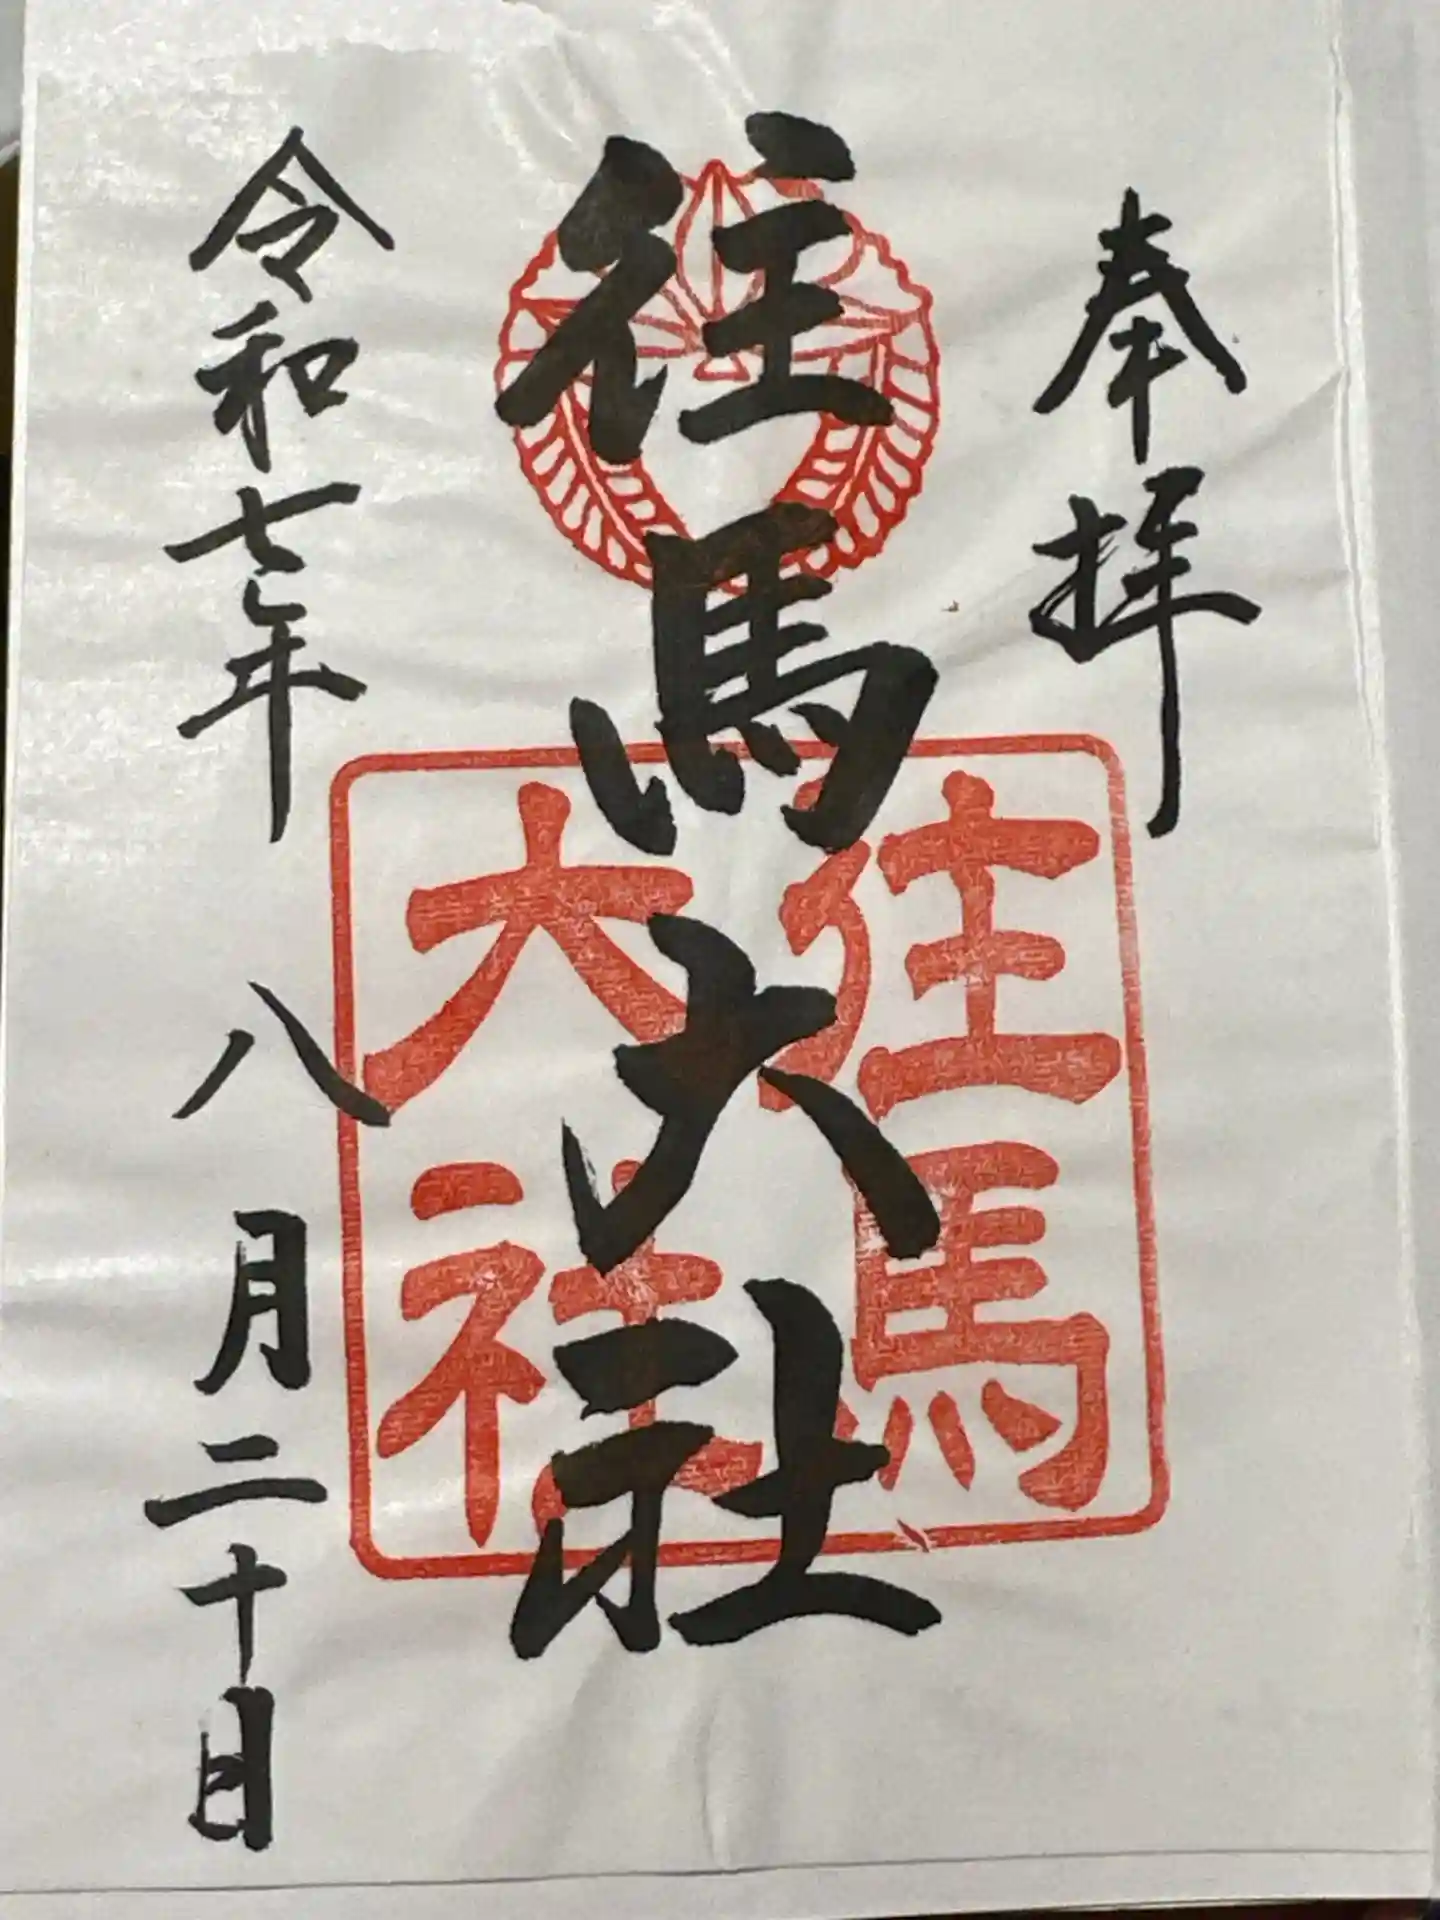 奉拝
往馬大社
往馬
大社
令和七年八月二十日